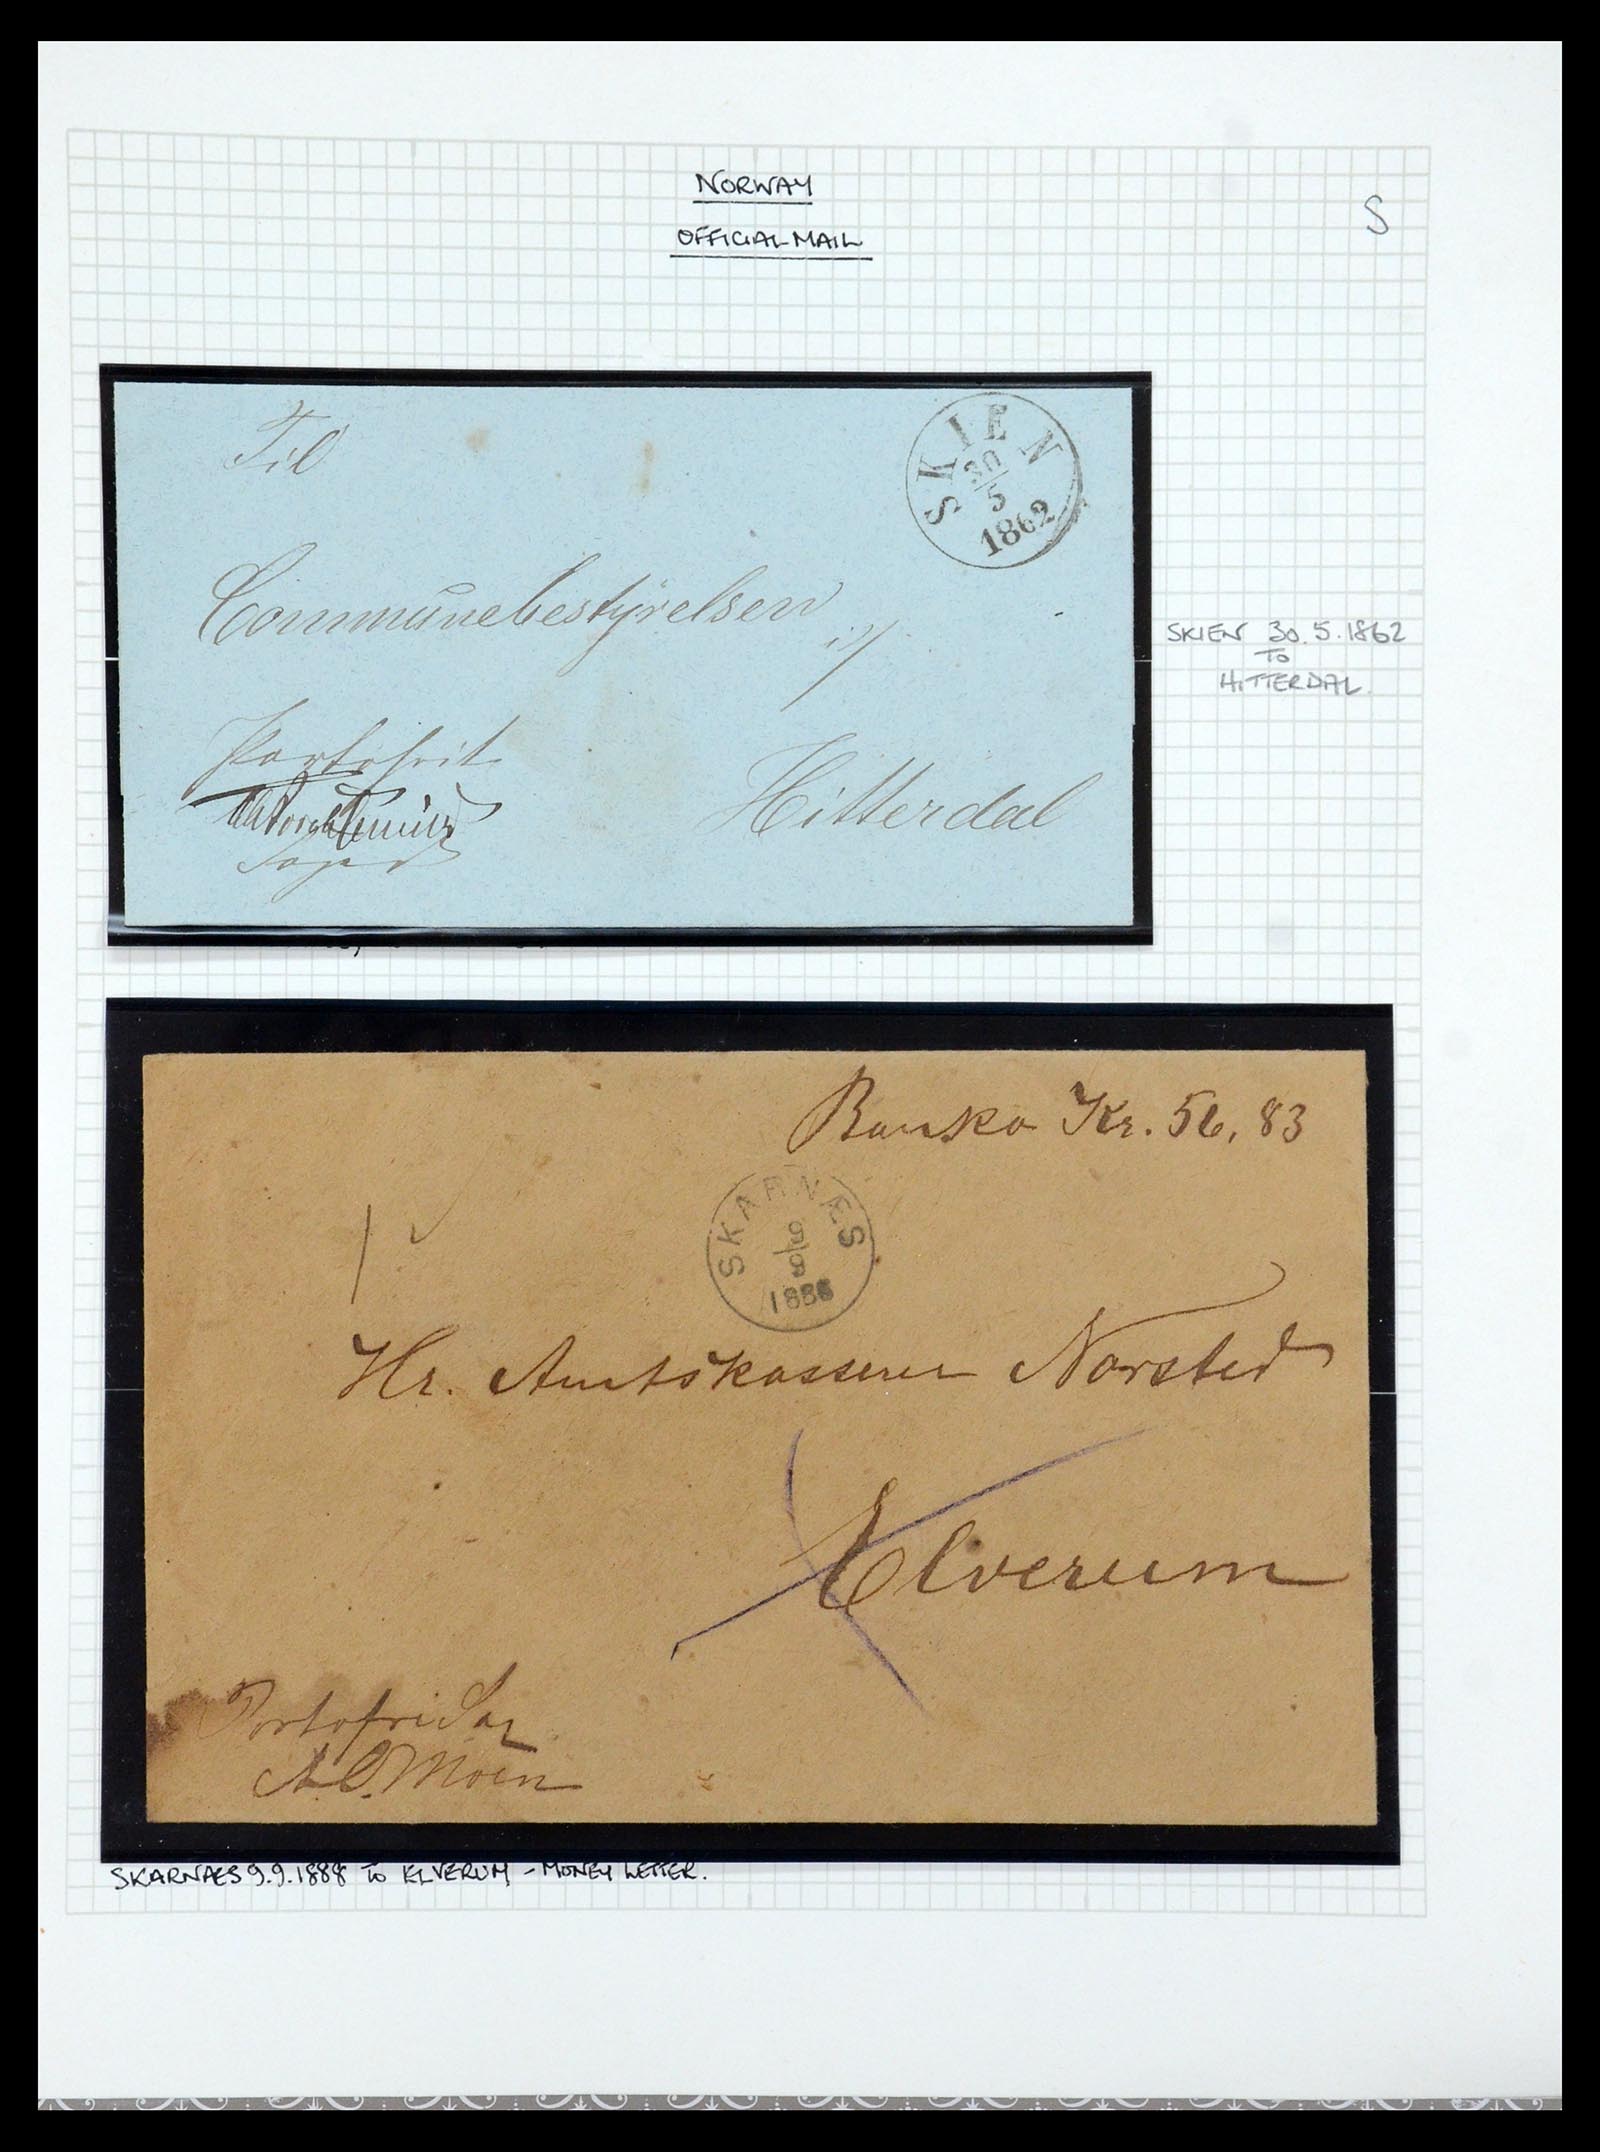 NORWAY
OFFICIAL MAIL
S
Til
SKIEN
30/5
1862
Communebestyrelsen
i/
Portofrit
Foged
Hitterdal
SKIEN 30.5.1862
TO
HITTERDAL
Banko Kr. 56,83
SKARNÆS
9/9
1888
Hr. Amtskasserer Norsted
Elverum
Portofri Sag
A.O. Moen
SKARNAES 9.9.1888 TO ELVERUM - MONEY LETTER.